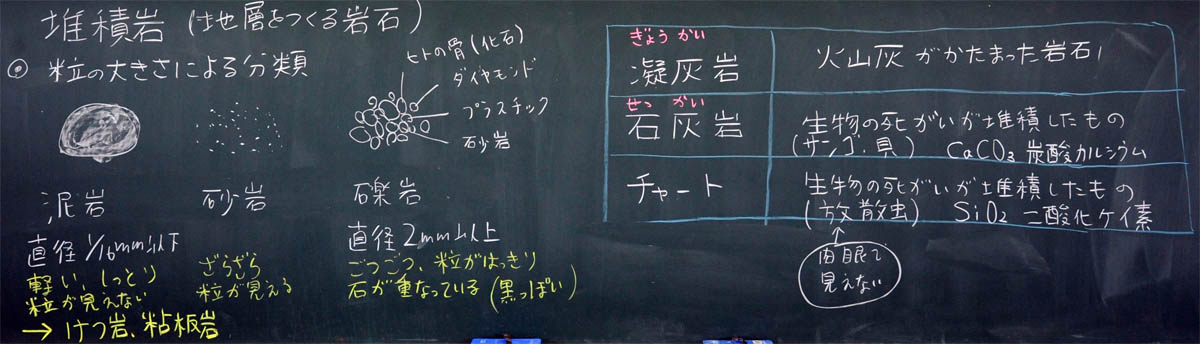 堆積岩 (地層をつくる岩石)
◎ 粒の大きさによる分類
ヒトの骨(化石)
ダイヤモンド
プラスチック
砂岩
泥岩
直径1/16mm以下
軽い、しっとり
粒が見えない
→ けつ岩、粘板岩
砂岩
ざらざら
粒が見える
礫岩
直径2mm以上
ごつごつ、粒がはっきり
石が重なっている(黒っぽい)
ぎょう かい
凝灰岩
火山灰がかたまった岩石
せっ かい
石灰岩
生物の死がいが堆積したもの
(サンゴ、貝) CaCO3 炭酸カルシウム
チャート
生物の死がいが堆積したもの
(放散虫) SiO2 二酸化ケイ素
肉眼で
見えない